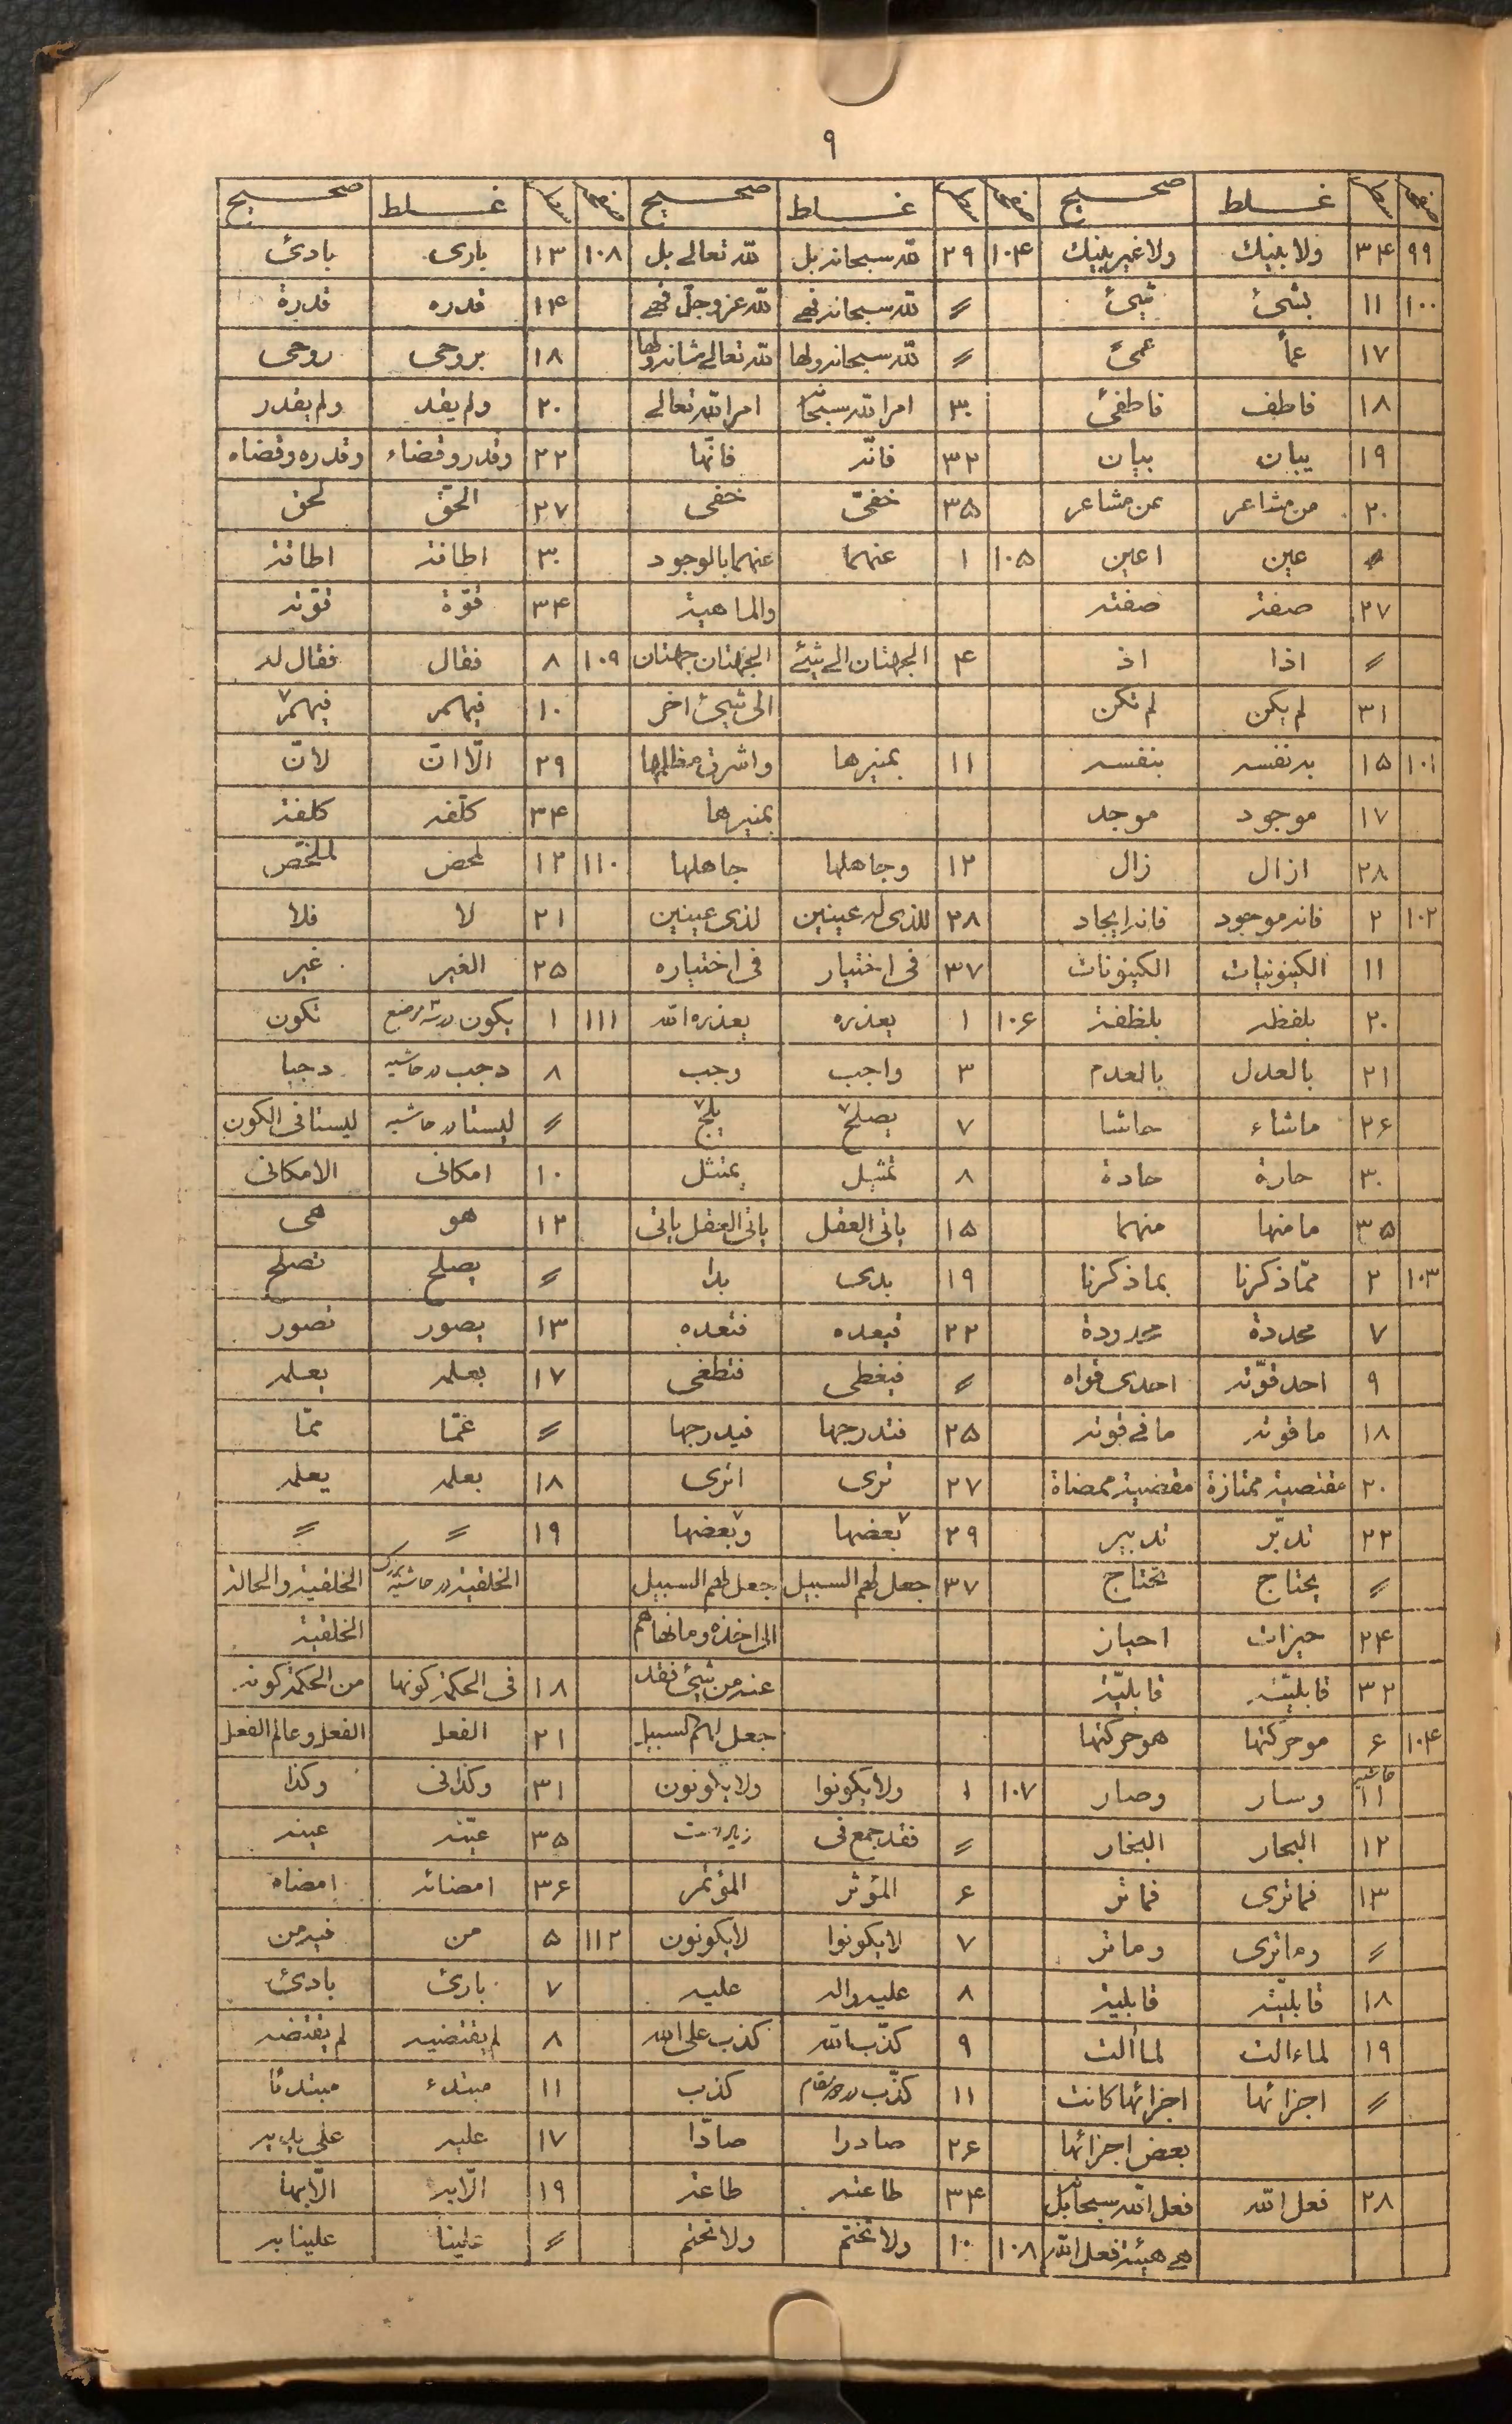 ٩
صفحه سطر غلط صحیح صفحه سطر غلط صحیح صفحه سطر غلط صحیح
٩٩ ٣۴ ولا بلیك ولا غیر بلیك ١٠۴ ٢٩ لله سبحانه بل لله تعالی بل ١٠٨ ١٣ باری بادئ
١٠٠ ١١ بشئ شئ 〃 لله سبحانه فهی لله عز وجلّ فهی ١۴ قدره قدرة
١٧ عمأ عمئ 〃 لله سبحانه ولها لله تعالی شانه ولها ١٨ بروحی روحی
١٨ فاطف فاطفئ ٣٠ امر الله سبحانه امر الله تعالی ٢٠ ولم یقد ولم یقدر
١٩ یبان بیان ٣٢ فانّه فانّها ٢٢ وقدر وقضاء وقدره وقضاه
٢٠ من مشاعر عن مشاعر ٣۵ خفیّ خفی ٢٧ الحقّ لحق
〃 عین اعین ١٠۵ ١ عنهما عنهما بالوجود ٣٠ اطاقة اطاقته
٢٧ صفة صفته والماهیة ٣۴ قوّة قوّته
〃 اذا اذ ۴ الجهتان الی شئ الجهتان جهتان ١٠٩ ٨ فقال فقال له
٣١ لم یکن لم تکن الی شئ اخر ١٠ فیهم فیهم
١٠١ ١۵ به نفسه بنفسه ١١ بمنیرها واشرق مظلمها ٢٩ الّا انّ لانّ
١٧ موجود موجد بمنیرها ٣۴ کلّفه کلفة
٢٨ ازال زال ١٢ وجاهلها جاهلها ١١٠ ١٢ لمحض لملخّص
١٠٢ ٢ فانه موجود فانه ایجاد ٢٨ للذی له عینین لذی عینین ٢١ لا فلا
١١ الکینونیات الکینونات ٣٧ فی اختیار فی اختیاره ٢۵ الغیر غیر
٢٠ بلفظه بلظفة ١٠۶ ١ یعذره یعذره الله ١١١ ١ یکون در سه موضع تکون
٢١ بالعدل بالعدم ٣ واجب وجب ٨ دجب در حاشیه دجبا
٢۶ ماشاء حاشا ٧ یصلح یلج 〃 لیستا در حاشیه لیستا فی الکون
٣٠ حارة حادة ٨ تمثیل یمثل ١٠ امکانی الامکانی
٣۵ ما منها منهما ١۵ یاتی العقل یاتی العقل یاتی ١٢ هو هی
١٠٣ ٢ ممّا ذکرنا بما ذکرنا ١٩ بدی بدا 〃 یصلح تصلح
٧ محددة محدودة ٢٢ فیعده فتعده ١٣ یصور تصور
٩ احد قوّته احدی قواه 〃 فیغطی فتطغی ١٧ بعلمه یعلمه
١٨ ما قوته ما فی قوته ٢۵ فتدرجها فیدرجها 〃 عمّا ممّا
٢٠ مقتصیة ممتازة مقتضیة ممضاة ٢٧ تری اتری ١٨ بعلمه یعلمه
٢٢ تدبّر تدبیر ٢٩ بعضها وبعضها ١٩ 〃 〃
〃 یحتاج تحتاج ٣٧ جعل لهم السبیل جعل لهم السبیل الخلقیة در حاشیه الخلقیة والحالة
٢۴ حیزات احیاز الی اخذه وما نهاهم الخلقیة
٣٢ قابلیّته قابلیّة عنه من شئ فقد ١٨ فی الحکمة کونها من الحکمة کونه
١٠۴ ۶ موحرکتها هو حرکتها جعل لهم السبیل ٢١ الفعل الفعل وعالم الفعل
حاشیه ١١ وسار وصار ١٠٧ ١ ولا یکونوا ولا یکونون ٣١ وکذا فی وکذا
١٢ البحار البخار 〃 فقد جمع فی ٣۵ عیّنه عینه
١٣ فما تری فما تر ۶ المؤثر المؤتمر ٣۶ امضائه امضاه
〃 وما تری وما تر ٧ لا یکونوا لا یکونون ١١٢ ۵ من فیه من
١٨ قابلیّته قابلیة ٨ علیه واله علیه ٧ بارئ بادئ
١٩ لماءالت لماألت ٩ کذّب الله کذب علی الله ٨ لم یقتضیه لم یقتضه
〃 اجزائها اجزائها کانت ١١ کذّب کذب ١١ مبتدء مبتدئا
بعض اجزائها ٢۶ صادرا صادّا ١٧ علیه علی یدیه
٢٨ فعل الله فعل الله سبحانه بل ٣۴ طاعته طاعة ١٩ الّا به الّا بها
هی هیئة فعل الله ١٠٨ ١٠ ولا تختم ولا تحتم 〃 علینا علینا به